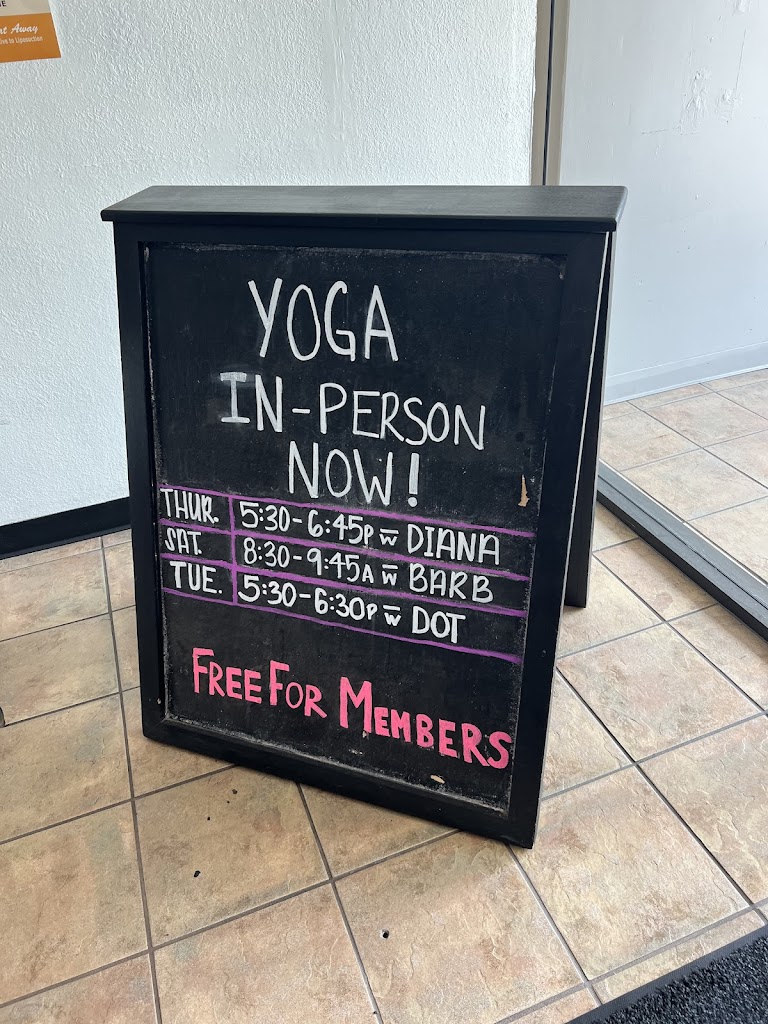 at Away
to Liposuction
YOGA
IN-PERSON
NOW!
THUR. 5:30-6:45P w̅ DIANA
SAT. 8:30-9:45A w̅ BARB
TUE. 5:30-6:30P w̅ DOT
FREE FOR MEMBERS